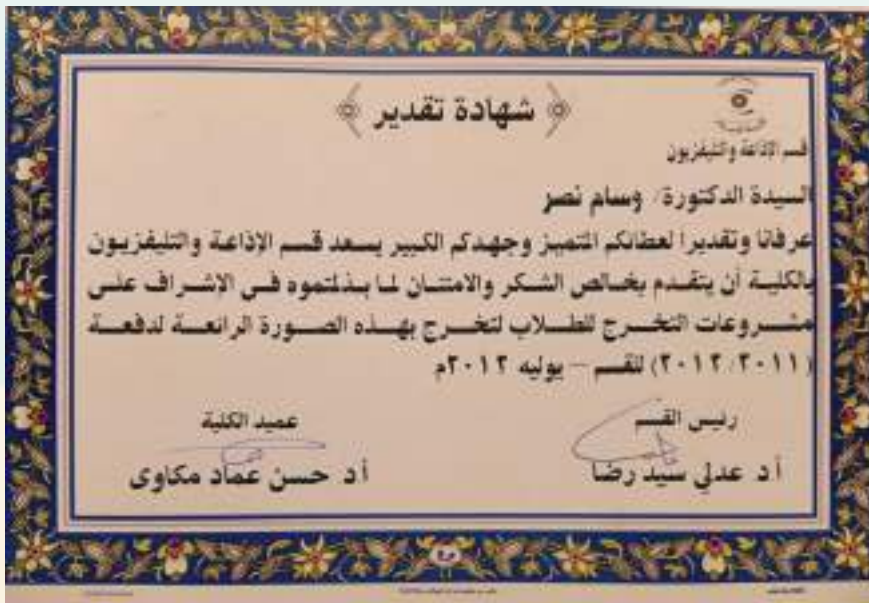 شهادة تقدير
قسم الإذاعة والتليفزيون
السيدة الدكتورة/ وسام نصر
عرفانا وتقديرا لعطائكم المتميز وجهدكم الكبير يسعد قسم الإذاعة والتليفزيون
بالكلية أن يتقدم بخالص الشكر والامتنان لما بذلتموه فى الإشراف على
مشروعات التخرج للطلاب لتخرج بهذه الصورة الرائعة لدفعة
(٢٠١١/ ٢٠١٢) للقسم – يوليه ٢٠١٢م
رئيس القسم
عميد الكلية
أ.د عدلي سيد رضا
أ.د حسن عماد مكاوى